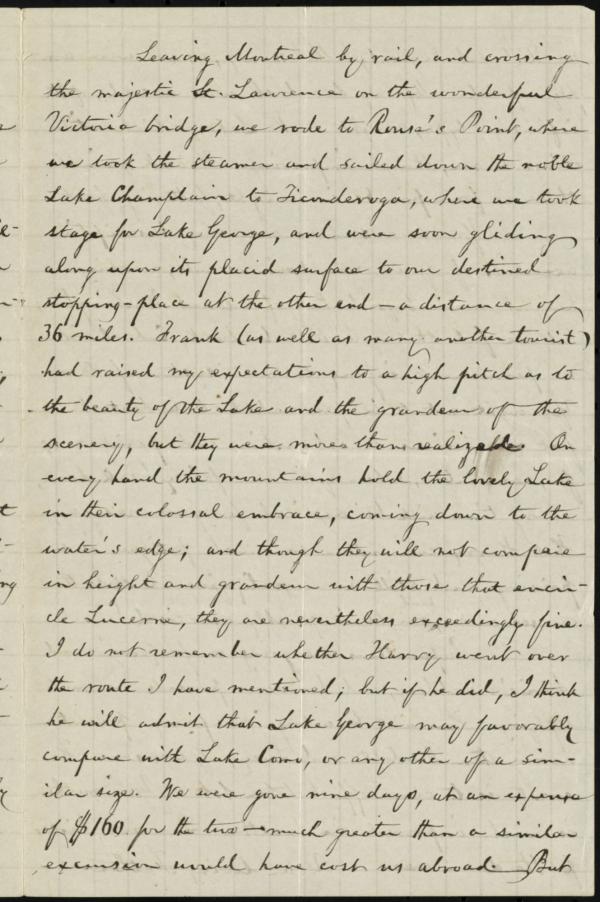 Leaving Montreal by rail, and crossing
the majestic St. Lawrence on the wonderful
Victoria bridge, we rode to Rouse's Point, where
we took the steamer and sailed down the noble
Lake Champlain to Ticonderoga, where we took
stage for Lake George, and were soon gliding
along upon its placid surface to our destined
stopping-place at the other end – a distance of
36 miles. Frank (as well as many another tourist)
had raised my expectations to a high pitch as to
the beauty of the Lake and the grandeur of the
scenery, but they were more than
On
every hand the mountains hold the lovely Lake
in their colossal embrace, coming down to the
water's edge; and though they will not compare
in height and grandeur with those that encir-
cle Lucerne, they are nevertheless exceedingly fine.
I do not remember whether Harry went over
the route I have mentioned; but if he did, I think
he will admit that Lake George may favorably
compare with Lake Como, or any other of a sim-
ilar size. We were gone nine days, at an expense
of $160 for the two – much greater than a similar
excursion would have cost us abroad. But